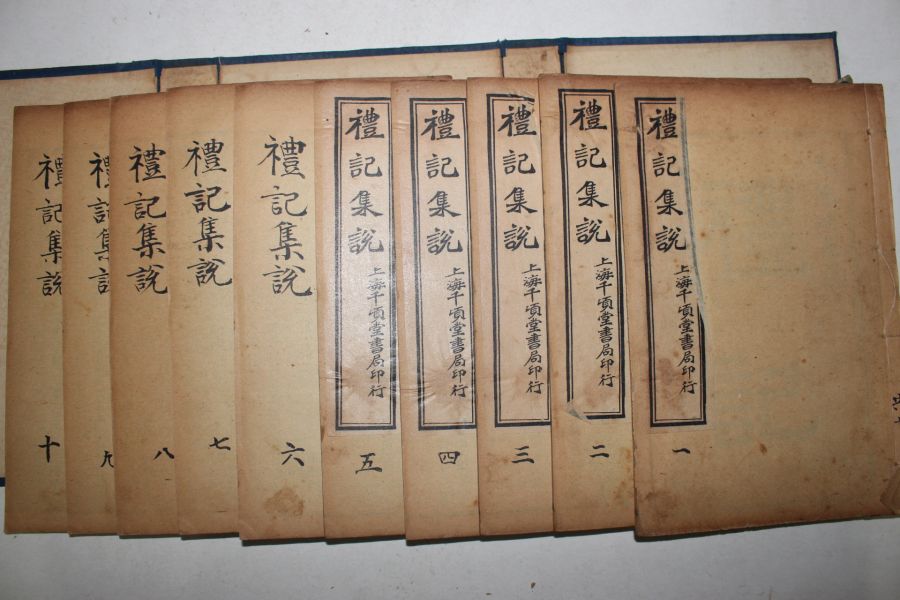 禮記集說
上海千頃堂書局印行
一
禮記集說
上海千頃堂書局印行
二
禮記集說
上海千頃堂書局印行
三
禮記集說
上海千頃堂書局印行
四
禮記集說
上海千頃堂書局印行
五
禮記集說
六
禮記集說
七
禮記集說
八
禮記集說
九
禮記集說
十